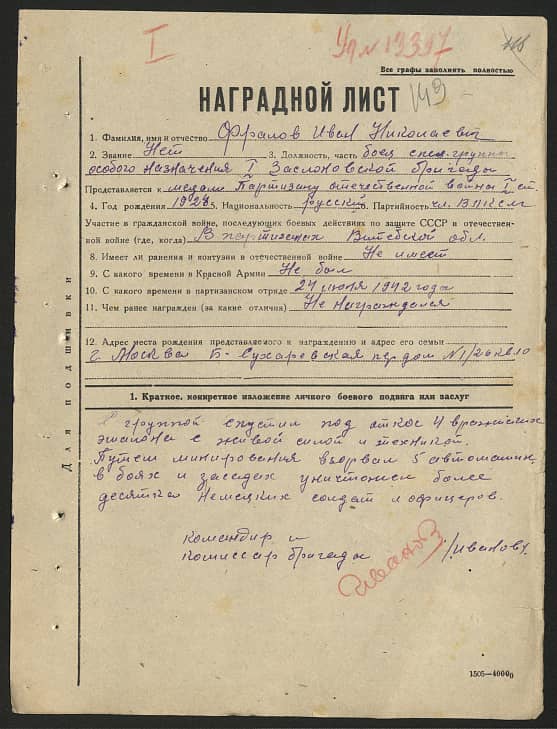 I
Уп№ 13397
118
Все графы заполнять полностью
НАГРАДНОЙ ЛИСТ
149
1. Фамилия, имя и отчество Фралов Иван Николаевич
2. Звание Нет 3. Должность, часть боец спец. группы
особого назначения I Заслоновской бригады
Представляется к медали Партизану отечественной войны I ст.
4. Год рождения 1928 5. Национальность русский 6. Партийность чл. ВЛКСМ
Участие в гражданской войне, последующих боевых действиях по защите СССР и отечествен-
ной войне (где, когда) В партизанах Витебской обл.
8. Имеет ли ранения и контузии в отечественной войне Не имеет
9. С какого времени в Красной Армии Не был
10. С какого времени в партизанском отряде 24 июня 1942 года
11. Чем ранее награжден (за какие отличия) Не награждался
12. Адрес места рождения представляемого к награждению и адрес его семьи
г. Москва Б-Сухаревская пер дом №1/26 кв 10
Для подшивки
1. Краткое, конкретное изложение личного боевого подвига или заслуг
С группой спустил под откос 4 вражеских
эшалона с живой силой и техникой.
Путем минирования взорвал 5 автомашин
в боях и засадах уничтожил более
десятка немецких солдат и офицеров.
Командир и
комиссар бригады /Иванов/.
Иванов
1505—4000